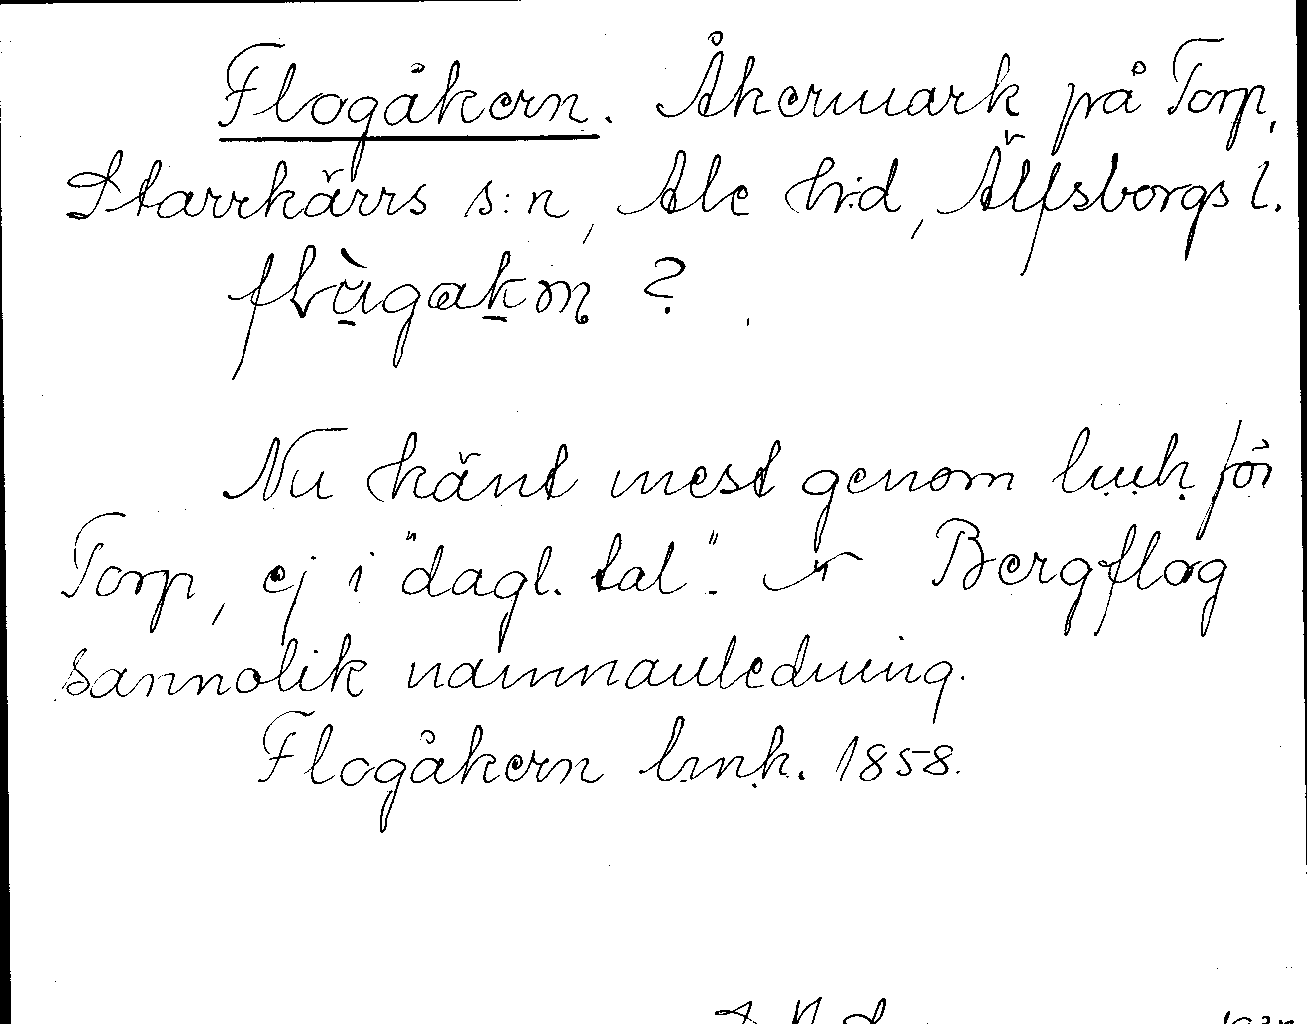 Flogåkern. Åkermark på Torp,
Starrkärrs s:n, Ale h:d, Älfsborgs l.
flùgakɷn ?
Nu känt mest genom l.u.k. för
Torp, ej i "dagl. tal". Bergflog
sannolik namnanledning.
Flogåkern l.m.k. 1858.